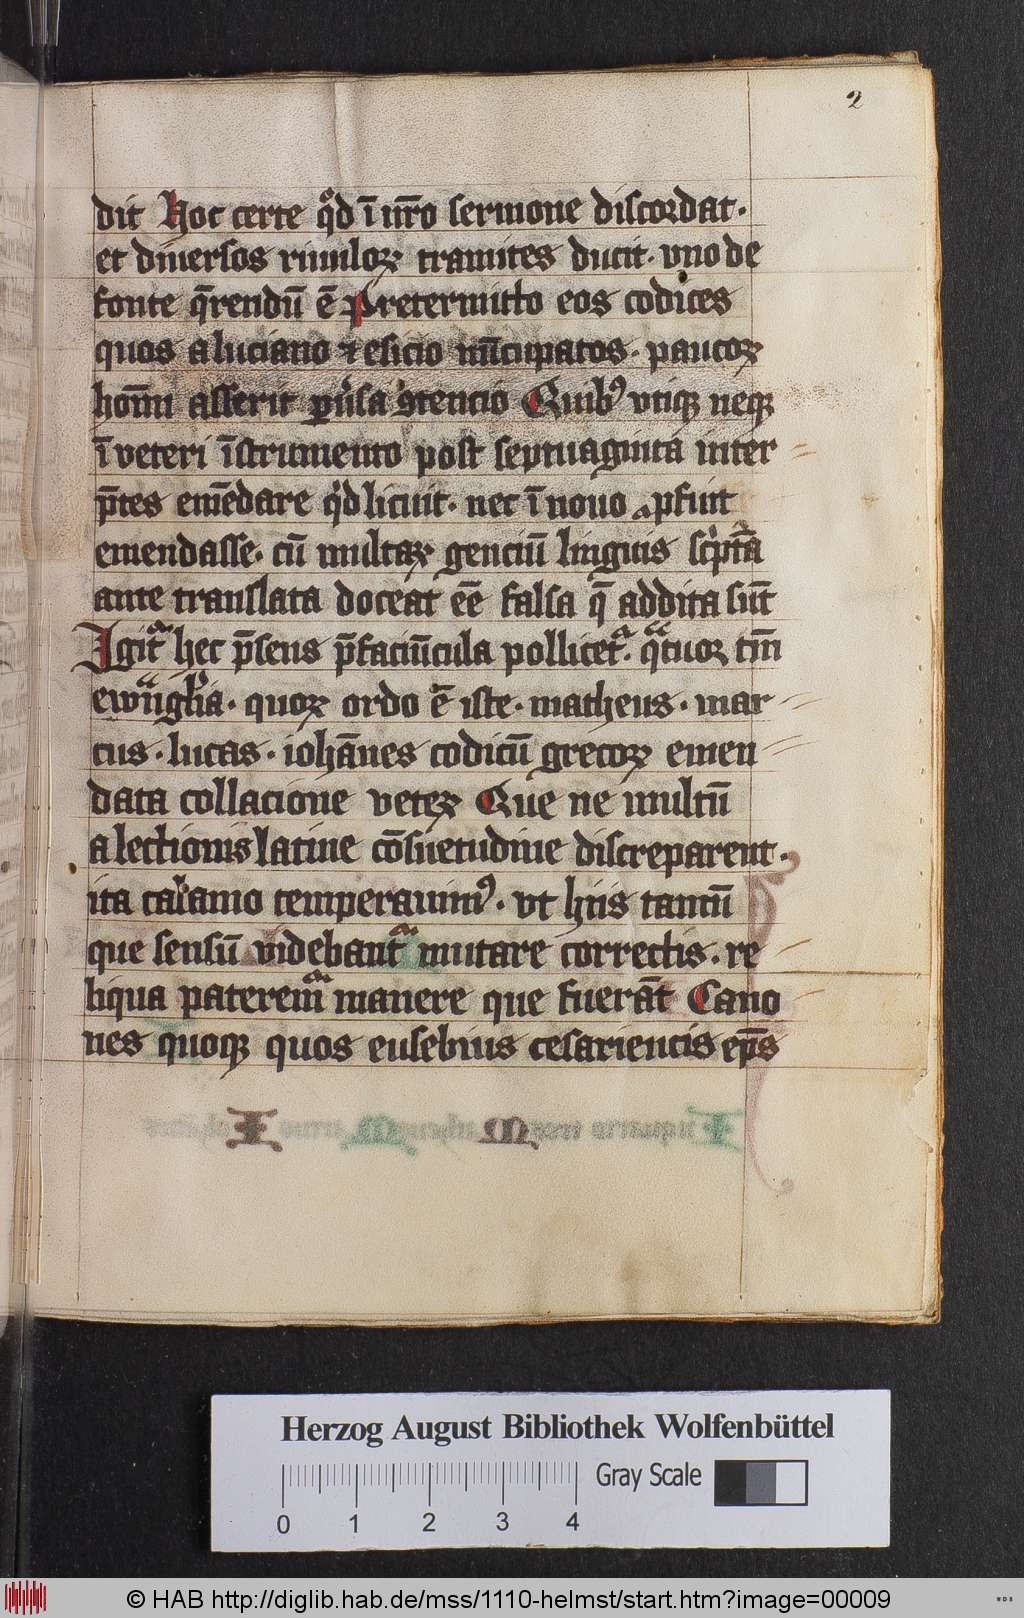 2
dit Hoc certe qͦd ī nr̄o sermone discordat·
et diuersos riuuloꝝ tramites ducit· vno de
fonte q̄rendū ē Pretermitto eos codices
quos a luciano ⁊ esicio nūcupatos· paucoꝝ
hoīm asserit puͥsa ꝯtencio Quibꝰ vtiqꝫ neqꝫ
ī veteri īstrumento post septuaginta inter
p̄tes emēdare qͥd licuit· nec ī nouo ꝓfuit
emendasse· cū multaꝝ genciū linguis scͥptᷓa
ante translata doceat eē falsa q̄ addita sūt
Igitᷓ hec p̄sens p̄faciūcula pollicetᷓ· qᷓtuoꝝ tm̄
ewᷓngl̄ia· quoꝝ ordo ē iste· matheus· mar
cus· lucas· iohānes codicū grecoꝝ emen
data collacione veteꝝ Que ne multū
a lectionis latine cōsuetudine discreparent·
ita calamo temperauimꝰ· vt hiis tantū
que sensū videbantᷓ mutare correctis· re
liqua pateremᷓ manere que fuerāt Cano
nes quoqꝫ quos eusebius cesariencis ep̄s
Herzog August Bibliothek Wolfenbüttel
Gray Scale
0 1 2 3 4
© HAB http://diglib.hab.de/mss/1110-helmst/start.htm?image=00009